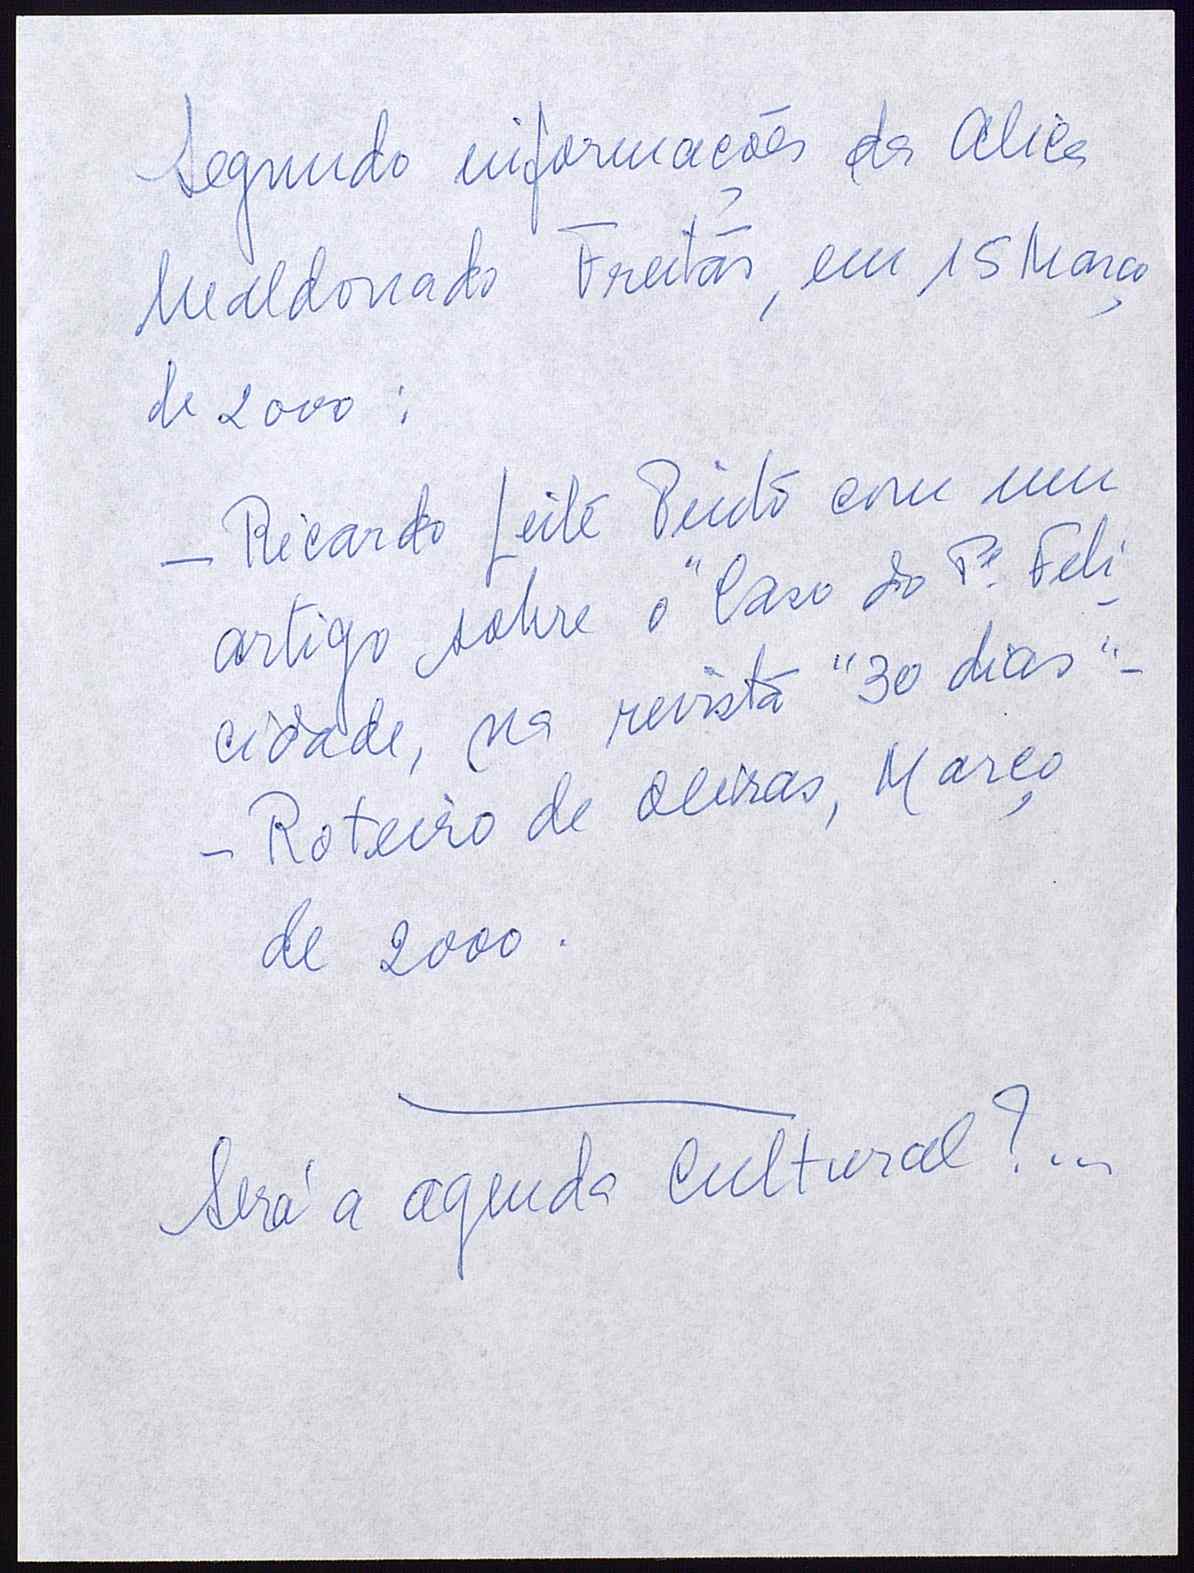 Segundo informações da Alice
Maldonado Freitas, em 15 Março
de 2000:
- Ricardo Leite Pinto com um
artigo sobre o "Caso do Pe. Feli-
cidade, na revista "30 dias" -
- Roteiro de Oeiras, Março
de 2000.
Será a agenda Cultural?...